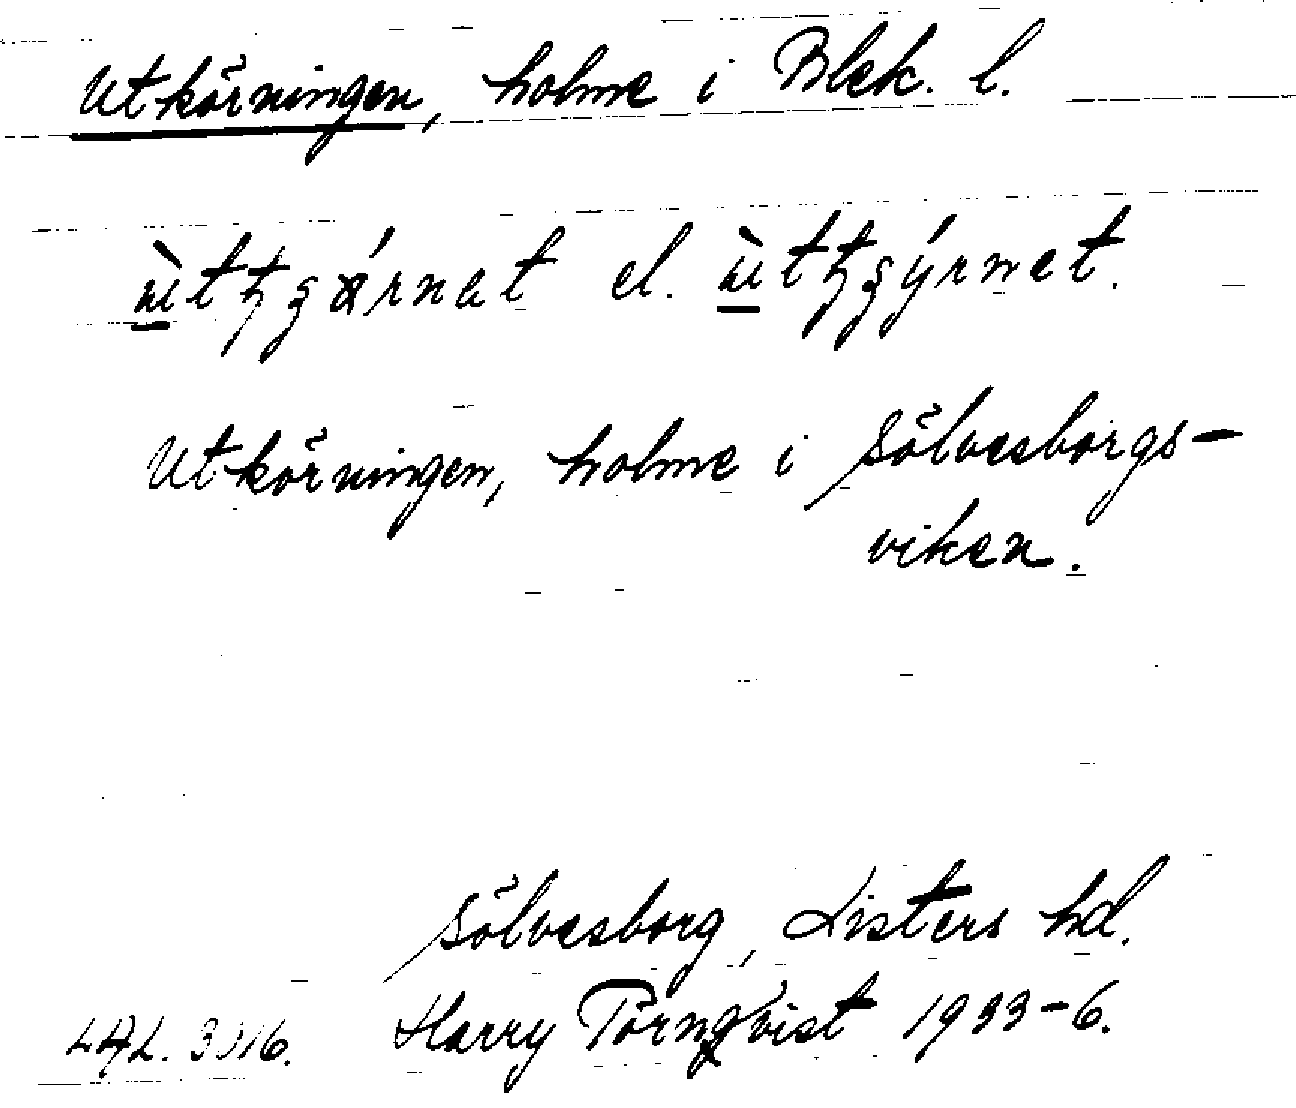 Utkörningen, holme i Blek. l.
el.
Utkörningen, holme i Sölvesborgs-
viken.
Sölvesborg, Listers hd.
Harry Törnqvist 1933-6.
LAL.